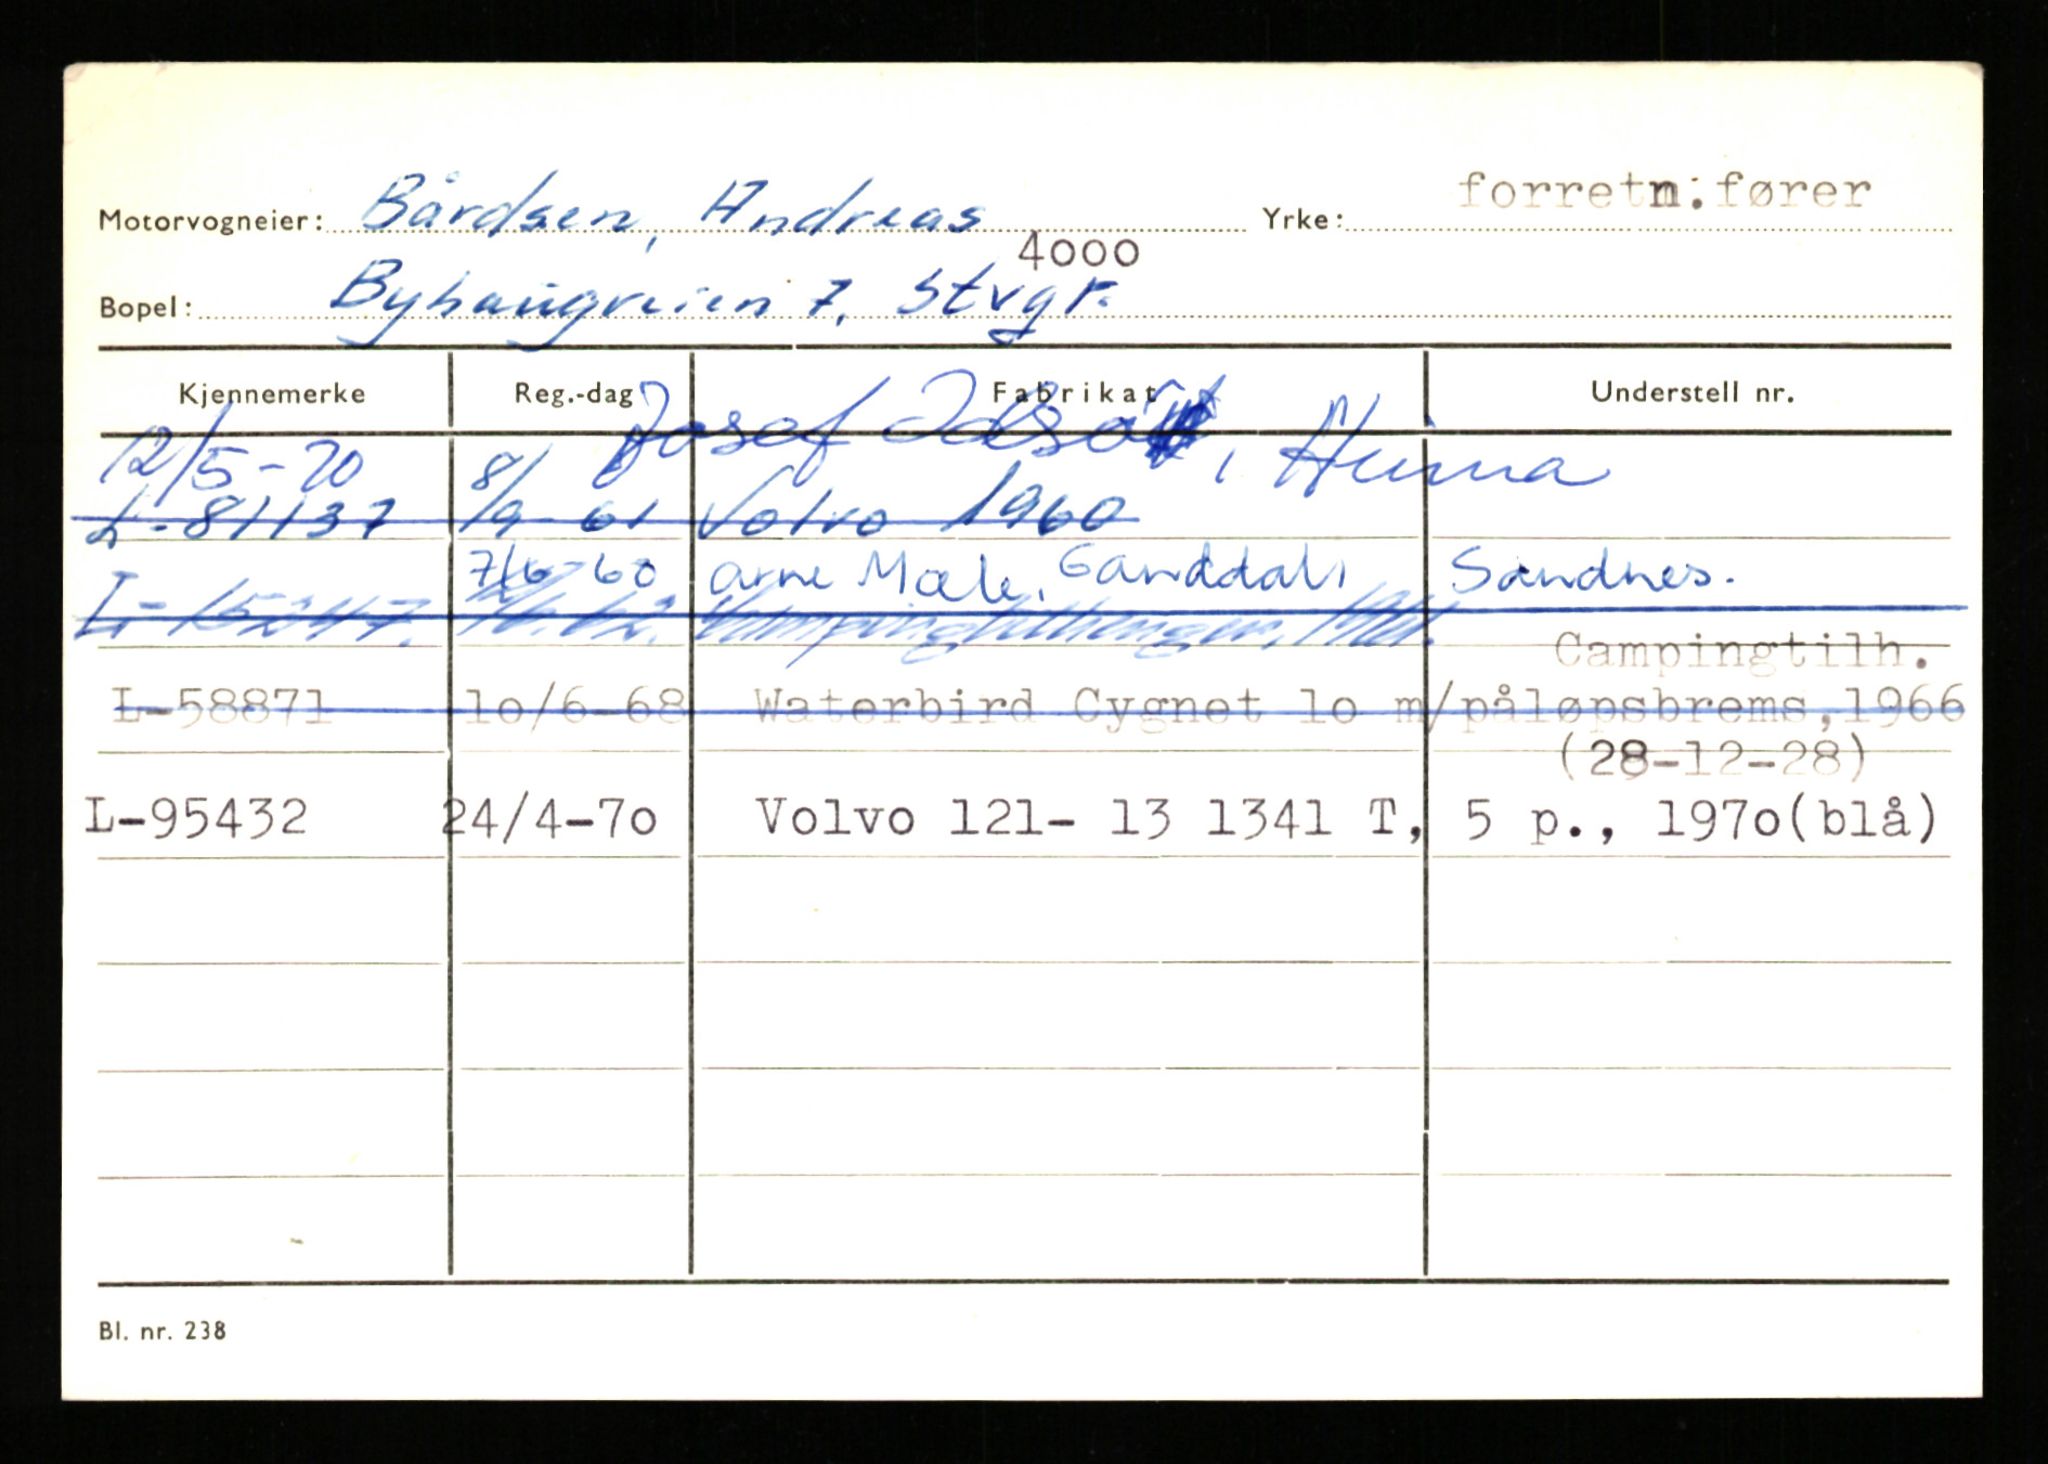 Motorvogneier: Bårdsen, Andreas Yrke: forretn.fører
4000
Bopel: Byhaugveien 7, Stvgr.
Kjennemerke Reg.-dag Fabrikat Understell nr.
12/5-70 Josef Idsø, Heima
L-81137 8/9-61 Volvo 1960
7/6-60 Arne Mæle, Ganddal, Sandnes.
L-15247. Campingtilhenger,
Campingtilh.
L-58871 lo/6-68 Waterbird Cygnet lo m/påløpsbrems,1966
(28-12-28)
L-95432 24/4-7o Volvo 121- 13 1341 T, 5 p., 197o(blå)
Bl. nr. 238